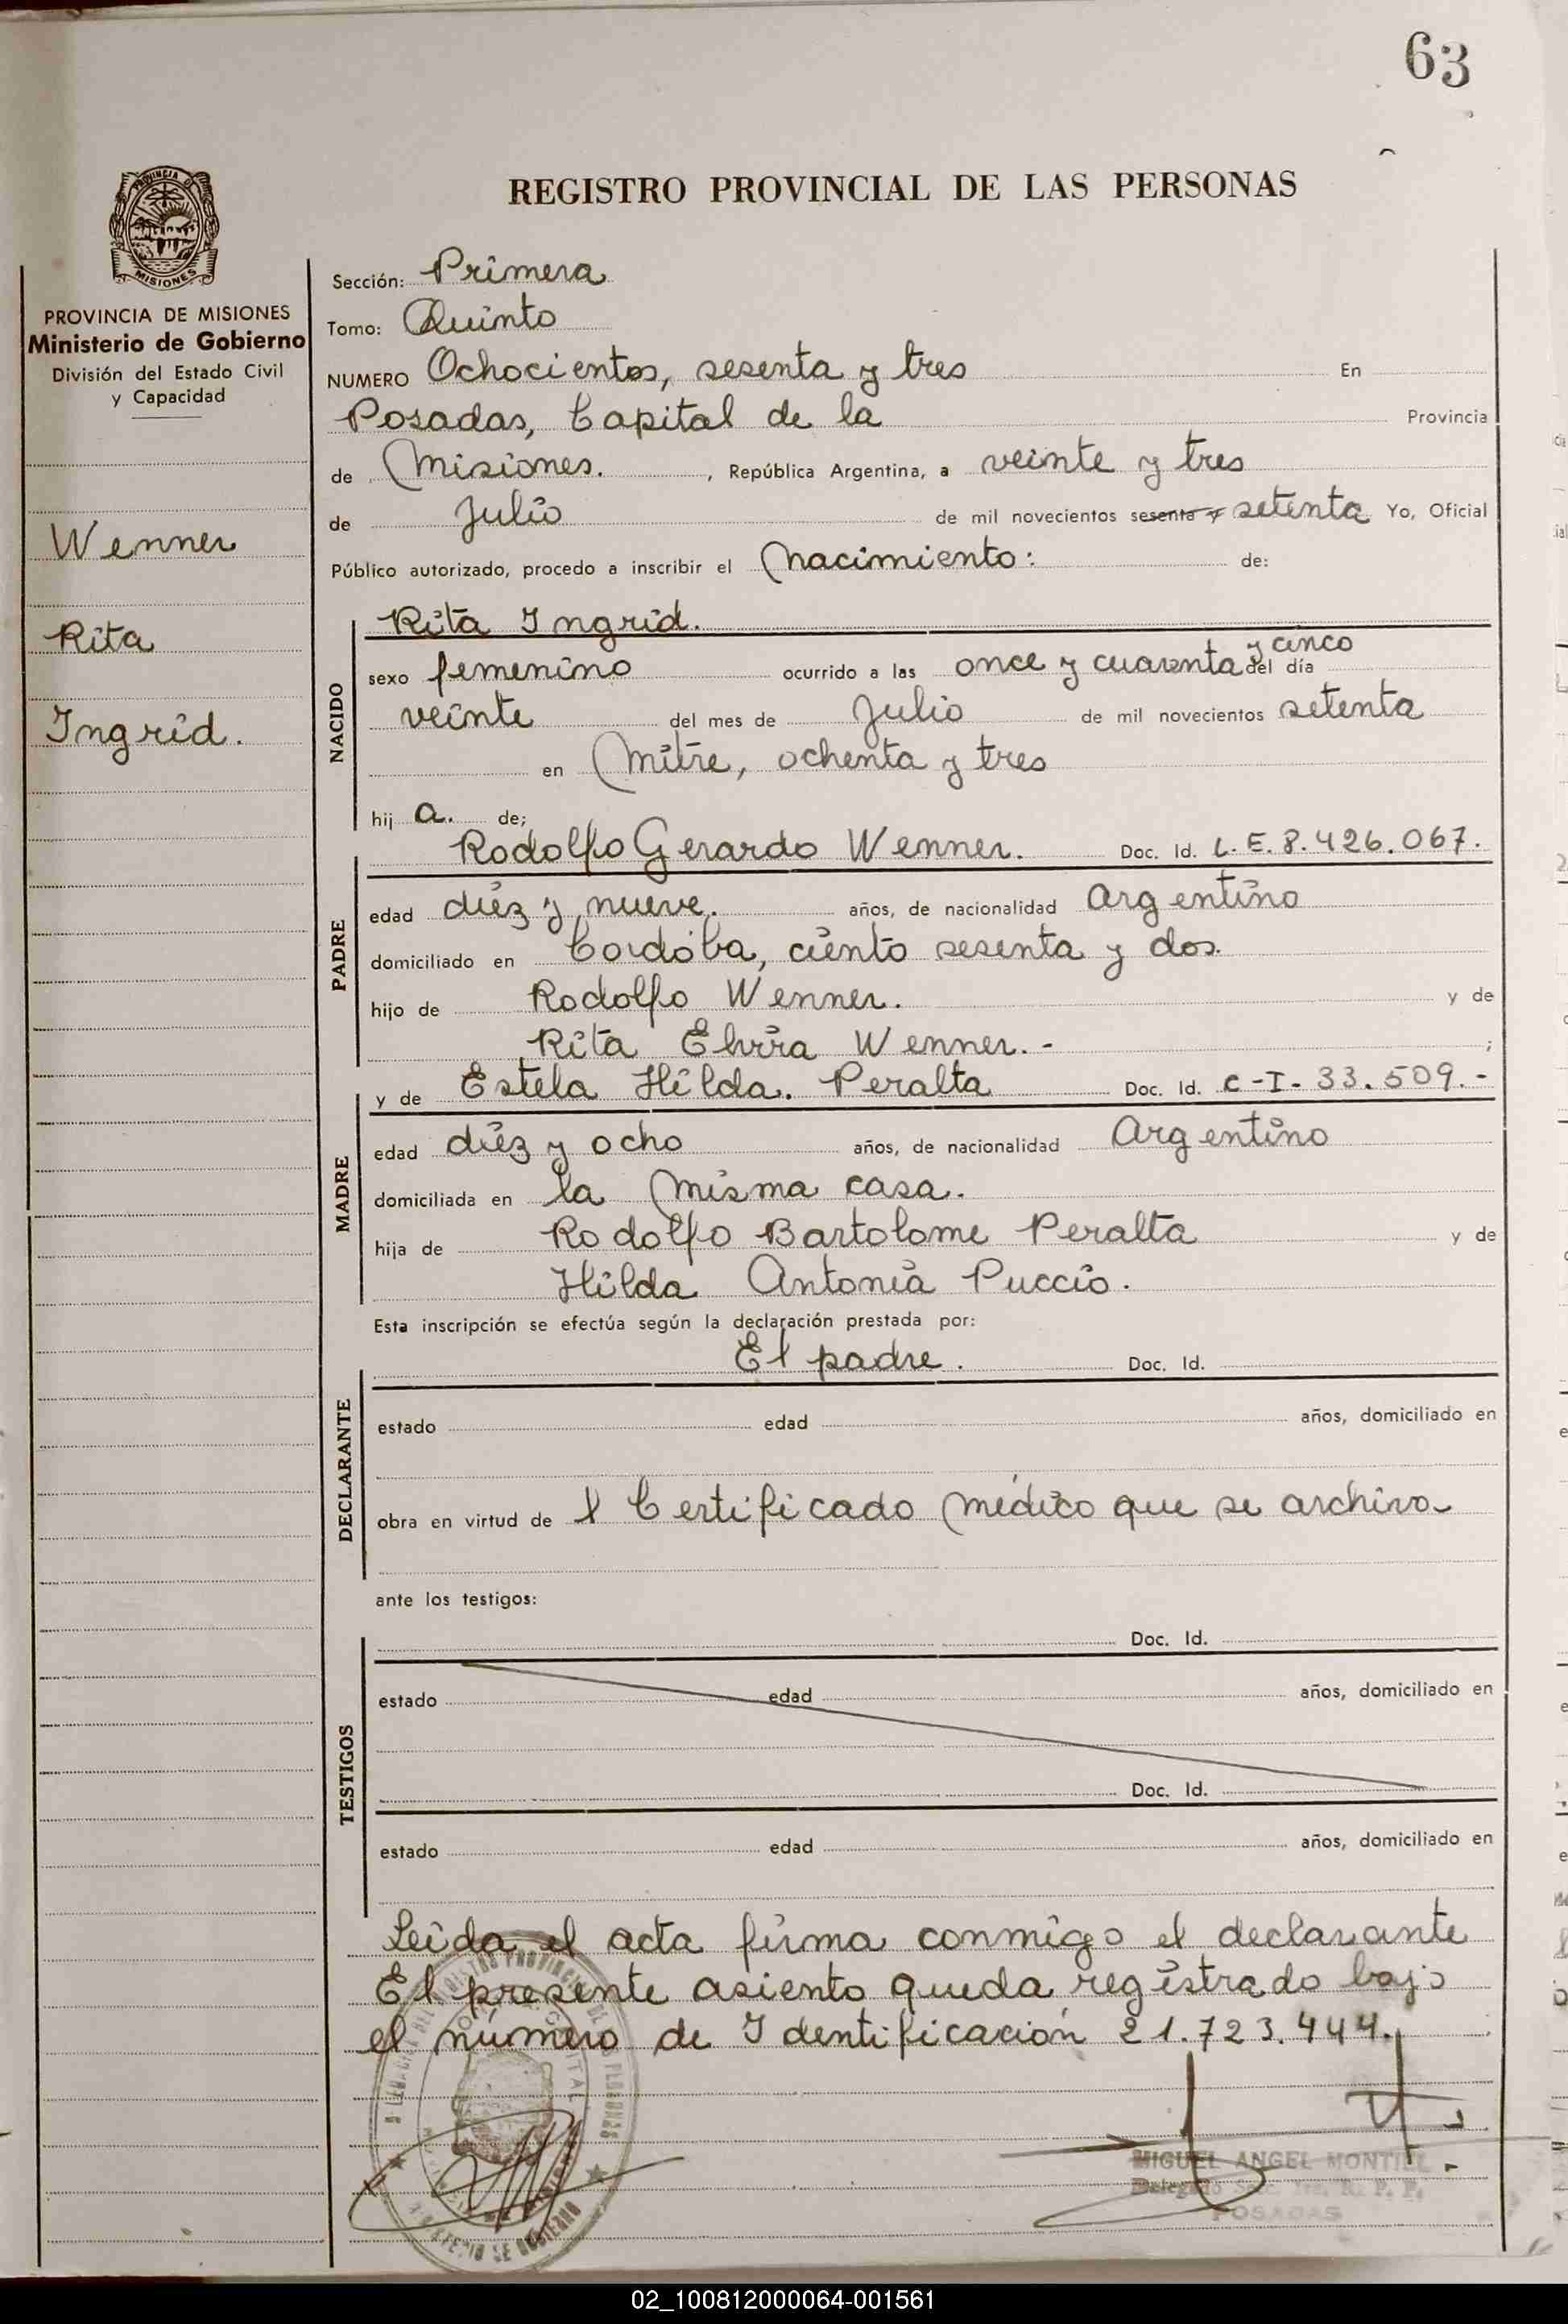 63
REGISTRO PROVINCIAL DE LAS PERSONAS
PROVINCIA DE MISIONES
Ministerio de Gobierno
División del Estado Civil
y Capacidad
Wenner
Rita
Ingrid.
Sección: Primera
Tomo: Quinto
NUMERO Ochocientos, sesenta y tres En
Posadas, Capital de la Provincia
de Misiones. , República Argentina, a veinte y tres
de Julio de mil novecientos sesenta y setenta Yo, Oficial
Público autorizado, procedo a inscribir el Nacimiento: de:
NACIDO
Rita Ingrid.
sexo femenino ocurrido a las once y cuarenta y cinco del día
veinte del mes de Julio de mil novecientos setenta
en Mitre, ochenta y tres
hij a. de;
PADRE
Rodolfo Gerardo Wenner. Doc. Id. L.E. 8.426.067.
edad diéz y nueve. años, de nacionalidad Argentino
domiciliado en Cordóba, ciento sesenta y dos.
hijo de Rodolfo Wenner. y de
Rita Elvira Wenner. - ;
MADRE
y de Estela Hilda. Peralta Doc. Id. C-I- 33.509.-
edad diéz y ocho años, de nacionalidad Argentino
domiciliada en la misma casa.
hija de Rodolfo Bartolome Peralta y de
Hilda Antonia Puccio.
Esta inscripción se efectúa según la declaración prestada por:
DECLARANTE
El padre. Doc. Id.
estado edad años, domiciliado en
obra en virtud de l Certificado médico que se archiva
ante los testigos:
TESTIGOS
Doc. Id.
estado edad años, domiciliado en
Doc. Id.
estado edad años, domiciliado en
Leida el acta firma conmigo el declarante
El presente asiento queda registrado bajo
el número de Identificación 21.723.444.
MIGUEL ANGEL MONTIEL
Delegado Secc. 1ra. R. P. P.
POSADAS
02_100812000064-001561